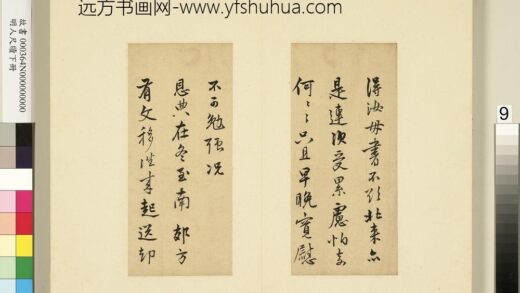 远方书画网-www.yfshuhua.com
故書 000364N000000000
明人尺牘下冊
得汝母書不欲北来亦
是連次受累慮怕
何只且早晚寬慰
不可勉强况
恩典在冬至南郊方
有文移往来起送却
9